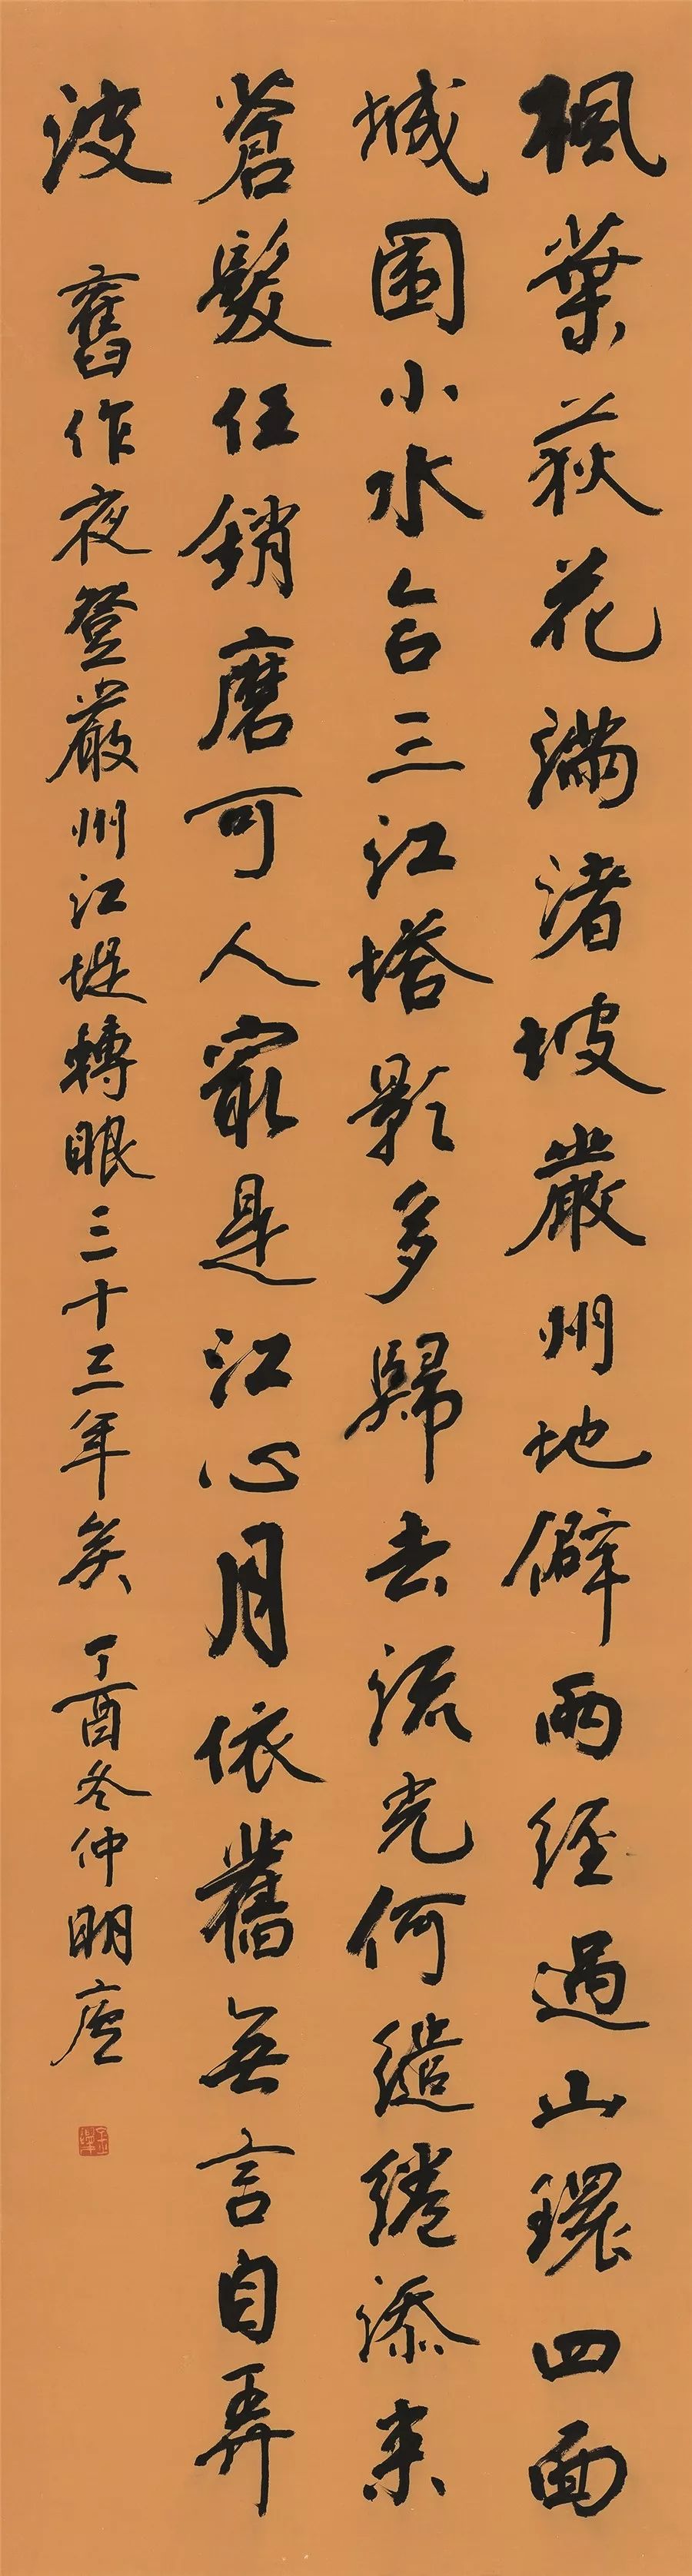 楓葉荻花滿渚坡嚴州地僻兩經過山環四面
城圍小水合三江塔影多歸去流光何繾綣添來
蒼髮任銷磨可人最是江心月依舊無言自弄
波 舊作夜登嚴州江堤轉眼三十三年矣 丁酉冬仲明庵